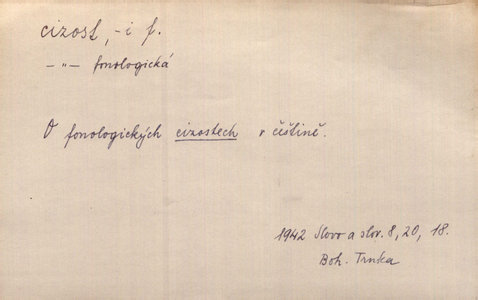 cizost, -i f.
— „ — fonologická
O fonologických cizostech v češtině.
1942 Slovo a slov. 8, 20, 18.
Boh. Trnka